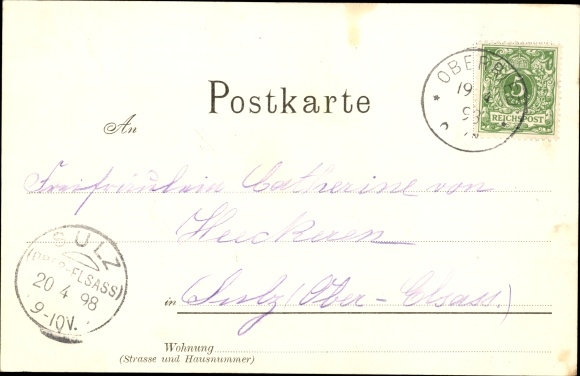 OBER
19 4
98
5
REICHSPOST
Postkarte
An
Freifräulein Catherine von
Heeckeren
SULZ
(OBER-ELSASS)
20 4 98
9-10V.
in Sulz (Ober-Elsass.)
Wohnung
(Strasse und Hausnummer)